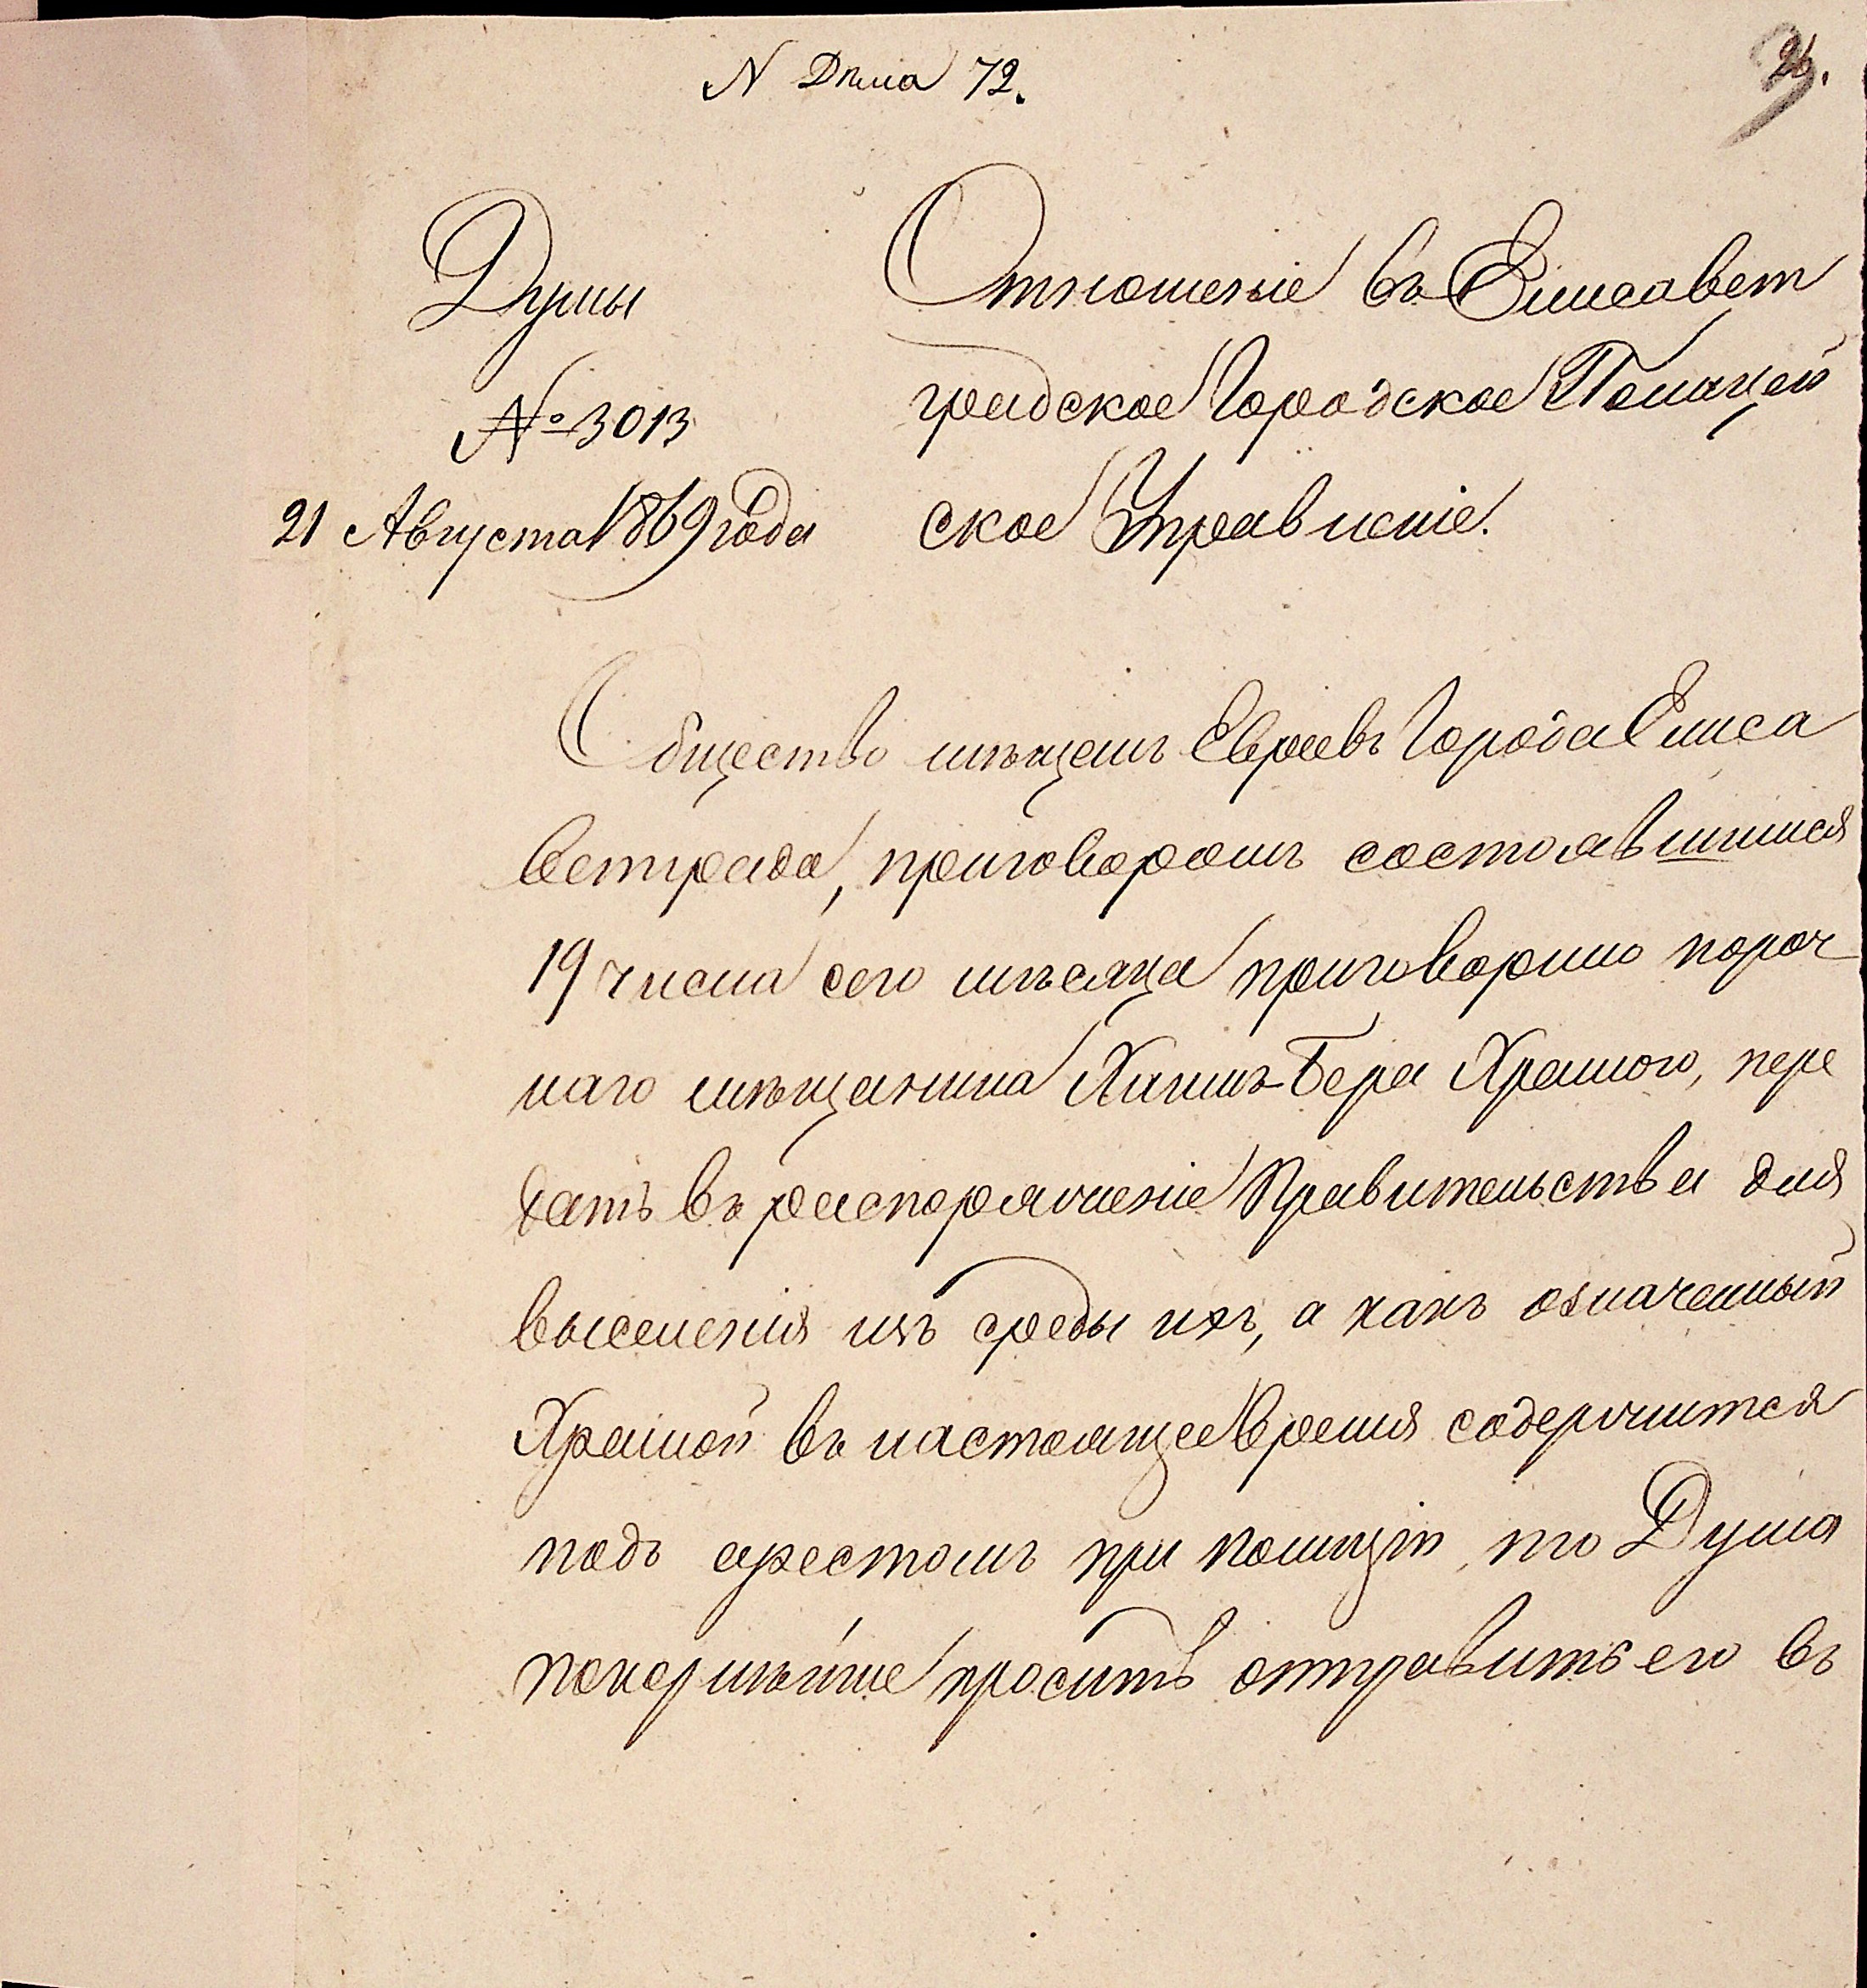 N Дѣла 72.
26.
Думы
№ 3013
21 Августа 1869 года
Отношеніе въ Елисавет
градское Городское Полицей
ское Управленіе.
Общество мѣщанъ Евреевъ Города Елиса
ветграда, приговоромъ состоявшимся
19 числа сего мѣсяца приговорило пороч
наго мѣщанина Хаимъ-Бера Храмого, пере
дать въ распоряженіе Правительства для
выселенія изъ среды ихъ, а какъ означенный
Храмой въ настоящее Время содержится
подъ арестомъ при полиціи, то Дума
покорнѣйше проситъ отправить его въ